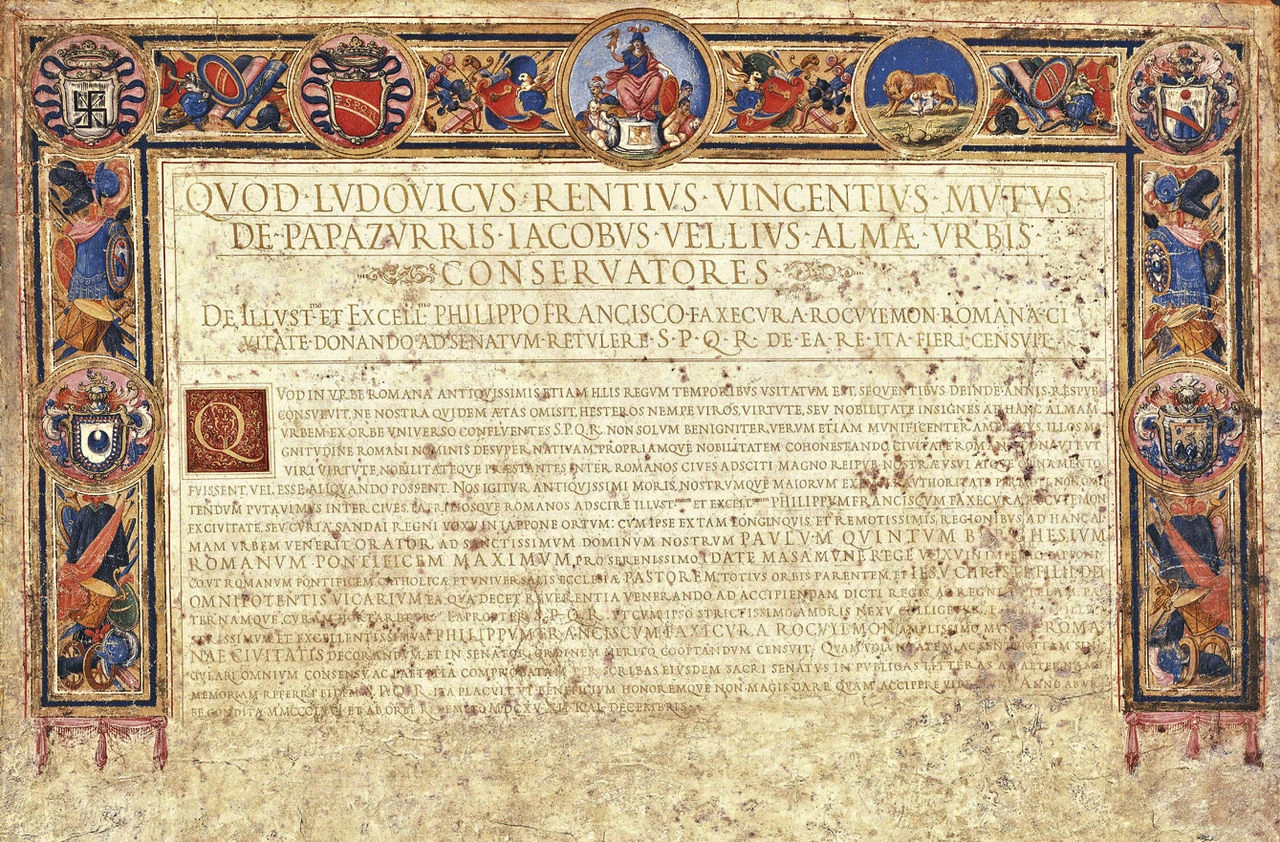 S·P·Q·R
QVOD·LVDOVICVS·RENTIVS·VINCENTIVS·MVTVS·
DE·PAPAZVRRIS·IACOBVS·VELLIVS·ALMÆ VRBIS·
CONSERVATORES
DE ILLVST^mo ET EXCELL^mo PHILIPPO FRANCISCO·FAXECVRA·ROCVYEMON·ROMANA·CI
VITATE·DONANDO·AD·SENATVM·RETVLERE·S·P·Q·R· DE·EA·RE·ITA·FIERI·CENSVIT·
QVOD IN VRBE ROMANA ANTIQVISSIMIS ETIAM ILLIS REGVM TEMPORIBVS VSITATVM EST, SEQVENTIBVS DEINDE ANNIS RESPVB
CONSVEVIT, NE NOSTRA QVIDEM ÆTAS OMISIT, HESTEROS NEMPE VIROS, VIRTVTE, SEV NOBILITATE INSIGNES AD HANC ALMAM
VRBEM EX ORBE VNIVERSO CONFLVENTES S.P.Q.R. NON SOLVM BENIGNITER, VERVM ETIAM MVNIFICENTER ILLOS MA
GNITVDINE ROMANI NOMINIS DESVPER NATIVAM, PROPRIAMQVE NOBILITATEM COHONESTANDO CIVITATE ROMANA DONAVIT VT
VIRI VIRTVTE, NOBILITATEQVE PRÆSTANTES INTER ROMANOS CIVES ADSCITI MAGNO REIPVB· NOSTRÆ VSVI ATQVE ORNAMENTO
FVISSENT, VEL ESSE ALIQVANDO POSSENT. NOS IGITVR ANTIQVISSIMI MORIS, NOSTRVMQVE MAIORVM AVTHORITATE
TENDVM PVTAVIMVS INTER CIVES, PATRITIOSQVE ROMANOS ADSCIRE ILLVST^mum ET EXCELL^mum PHILIPPVM FRANCISCVM FAXECVRA, ROCVYEMON
EX CIVITATE, SEV CVRIA SANDAI REGNI VOXV IN IAPPONE ORTVM: CVM IPSE EX TAM LONGINQVIS, ET REMOTISSIMIS, REGIONIBVS AD HANC AL
MAM VRBEM VENERIT ORATOR, AD SANCTISSIMVM DOMINVM NOSTRVM PAVLVM QVINTVM BVRGHESIVM
ROMANVM PONTIFICEM MAXIMVM, PRO SERENISSIMO IDATE MASAMVNE REGE VOXV IN IAPPONE
ROMANVM PONTIFICEM CATHOLICÆ ET VNIVERSALIS ECCLESIÆ PASTOREM, TOTIVS ORBIS PARENTEM, ET IESV CHRISTI FILII DEI
OMNIPOTENTIS VICARIVM EA QVA DECET REVERENTIA VENERANDO AD ACCIPIENDAM DICTI REGIS, AC REGNI TVTELAM, PA
TERNAMQVE, CVRAM HORTARETVR: EAPROPTER S·P·Q·R· VT CVM IPSO STRICTISSIMO AMORIS NEXV COLLIGETVR,
ET EXCELLENTISSIMVM PHILIPPVM FRANCISCVM FAXICVRA ROCVYEMON AMPLISSIMO ROMA
NÆ CIVITATIS DECORANDVM, ET IN SENATORVM ORDINEM MERITO COOPTANDVM CENSVIT: QVAM VOLVNTATEM, AC SENTENTIAM SIN
GVLARI OMNIVM CONSENSV, AC LAETITIA COMPROBATAM PER SCRIBAS EIVSDEM SACRI SENATVS IN PVBLICAS LITTERAS AD ÆTERNAM
MEMORIAM REFERRI EIDEM S.P.Q.R. ITA PLACVIT VT BENEFICIVM HONOREMQVE NON MAGIS DARE QVAM ACCIPERE ANNO AB VR
BE CONDITA ET AB ORBE REDEMPTO MDCXV XII KAL. DECEMBRIS